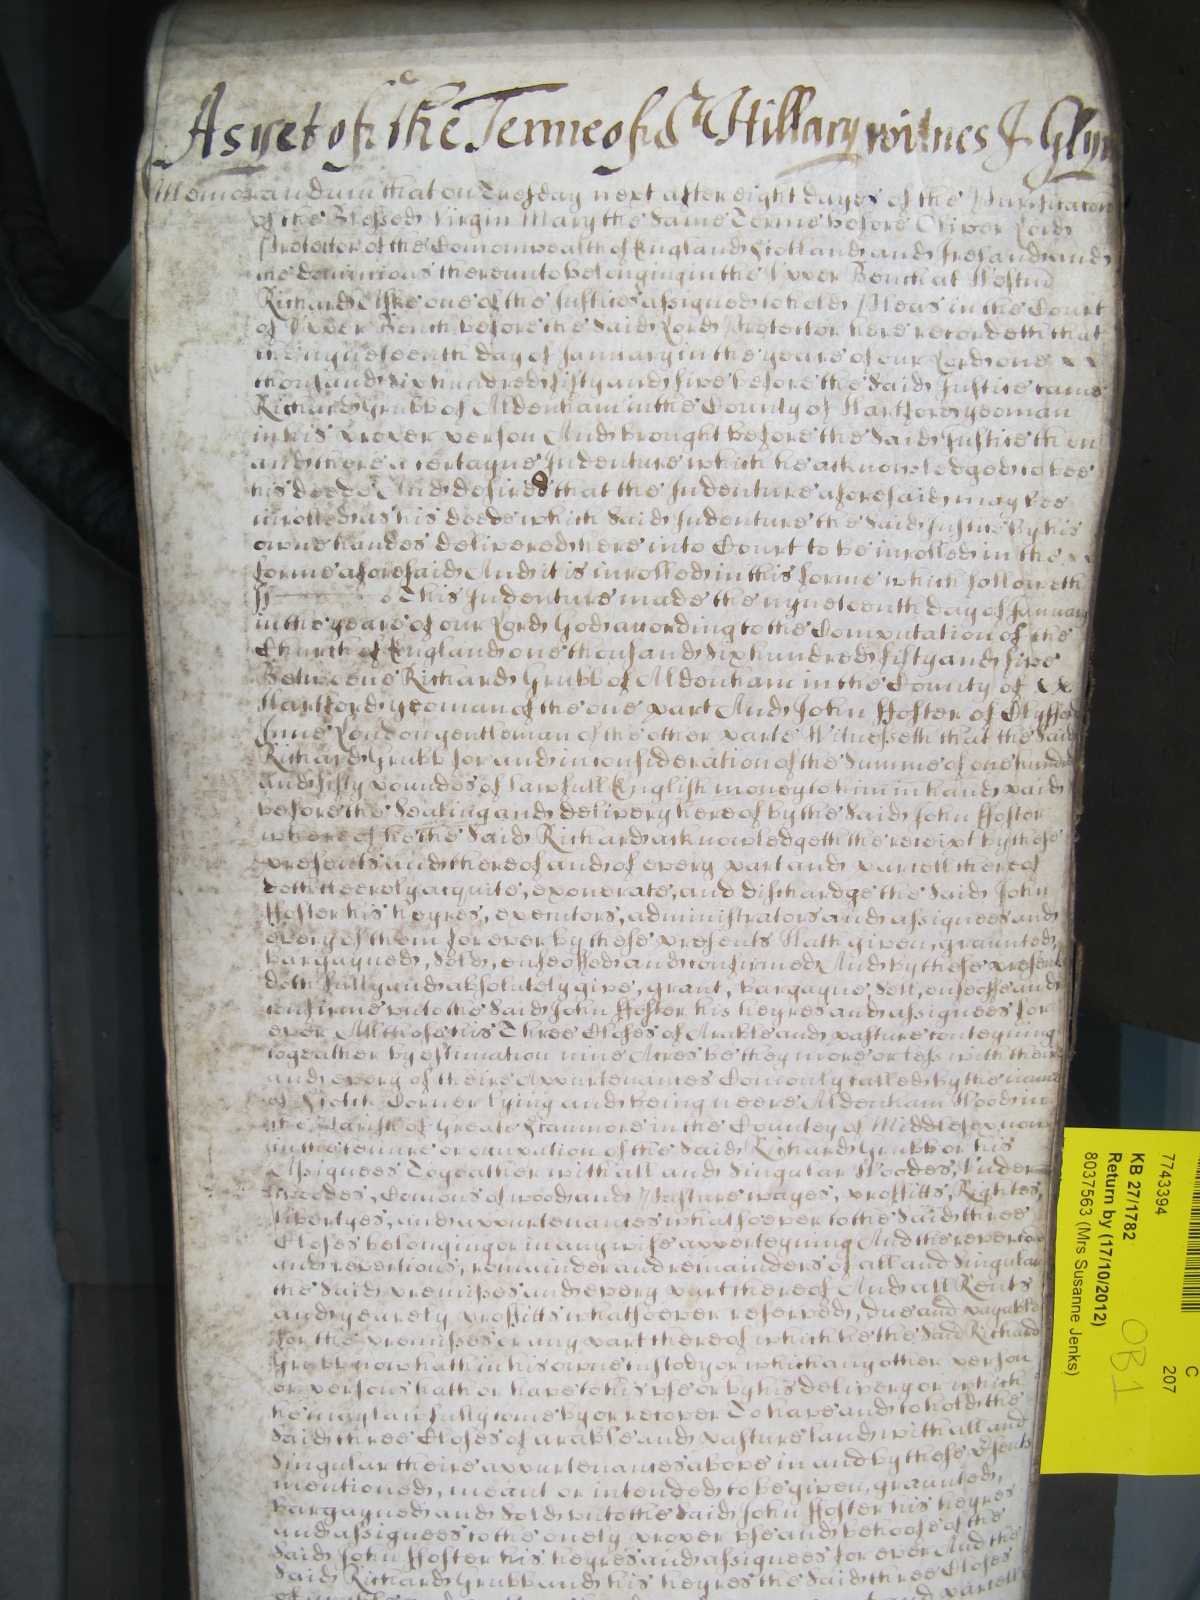 As yet of the Terme of St Hillary witnes J Glyn
Memorandum that on Tuesday next after eight dayes of the Purificacon
of the Blessed Virgin Mary the same Terme before Oliver Lord
Protector of the Comonwealth of England Scotland and Ireland and
the dominions thereunto belonging in the Upper Bench at Westmr
Richard Aske one of the Justices assigned to hold Pleas in the Court
of Upper Bench before the said Lord Protector here recordeth that
the nyneteenth day of January in the yeare of our Lord one
thousand six hundred fifty and five before the said Justice came
Richard Grubb of Aldenham in the County of Hartford yeoman
in his proper person And brought before the said Justice then
and there a certayne Indenture which he acknowledged to bee
his deede And desired that the Indenture aforesaid may bee
inrolled as his deede which said Indenture the said Justice by his
owne handes delivered here into Court to be inrolled in the
forme aforesaid And it is inrolled in this forme which followeth
ss This Indenture made the nyneteenth day of January
in the yeare of our Lord God according to the Computation of the
Church of England one thousand six hundred fifty and five
Betweene Richard Grubb of Aldenham in the County of
Hartford yeoman of the one part And John ffoster of Clyffords
Inne London gentleman of the other parte Witnesseth that the said
Richard Grubb for and in consideration of the summe of one hundred
and fifty poundes of lawfull English money to him in hand paid
before the sealing and delivery hereof by the said John ffoster
whereof he the said Richard acknowledgeth the receipt by these
presents and thereof and of every part and parcell thereof
doth cleerely acquite, exonerate, and dischardge the said John
ffoster his heyres, executors, administrators and assignees and
every of them for ever by these presents Hath given, graunted,
bargayned, sold, enfeoffed and confirmed And by these presents
doth fully and absolutely give, grant, bargayne, sell, enfeoffe and
confirme unto the said John ffoster his heyres and assignees for
ever All those his Three Closes of Arable and pasture conteyning
togeather by estimation nine Acres be they more or less with their
and every of theire Appurtenances Comonly called by the name
of Corner lying and being neere Aldenham Wood in
the Parish of Greate Stanmore in the Countey of Middlesex now
in the tenure or occupation of the said Richard Grubb or his
Assignees Togeather with all and singular Woodes, Under
woodes, Comons of wood and Pasture wayes, proffitts, Rightes,
libertyes, and appurtenances whatsoever to the said three
Closes belonging or in any wise apperteyning And the reversion
and revertions, remainder and remainders of all and singular
the said premises and every part thereof And all Rents
and yearely proffitts whatsoever reserved, due and payable
for the premisses or any part thereof which he the said Richard
Grubb now hath in his owne custody or which any other person
or persons hath or have to his use or by his delivery or which
he may lawfully come by or recover To have and to hold the
said three Closes of arable and pasture land with all and
singular theire appurtenances above in and by these psents
mentioned, meant or intended to be given, graunted,
bargayned and sold unto the said John ffoster his heyres
and assignees to the onely proper use and behoofe of the
said John ffoster his heyres and assignees for ever And the
said Richard Grubb and his heyres the said three Closes
and parcell
C
7743394 207
KB 27/1782
Return by (17/10/2012)
8037563 (Mrs Susanne Jenks)
OB1